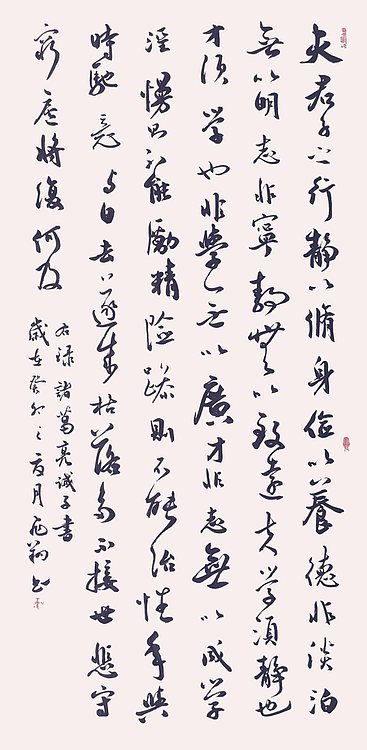 夫君子之行靜以脩身儉以養德非淡泊
無以明志非寧靜無以致遠夫學須靜也
才須學也非學无以廣才非志無以成學
淫慢則不能勵精險躁則不能治性年與
時馳意与日去遂成枯落多不接世悲守
窮廬將復何及
右録諸葛亮誡子書
歲在癸卯之夏月